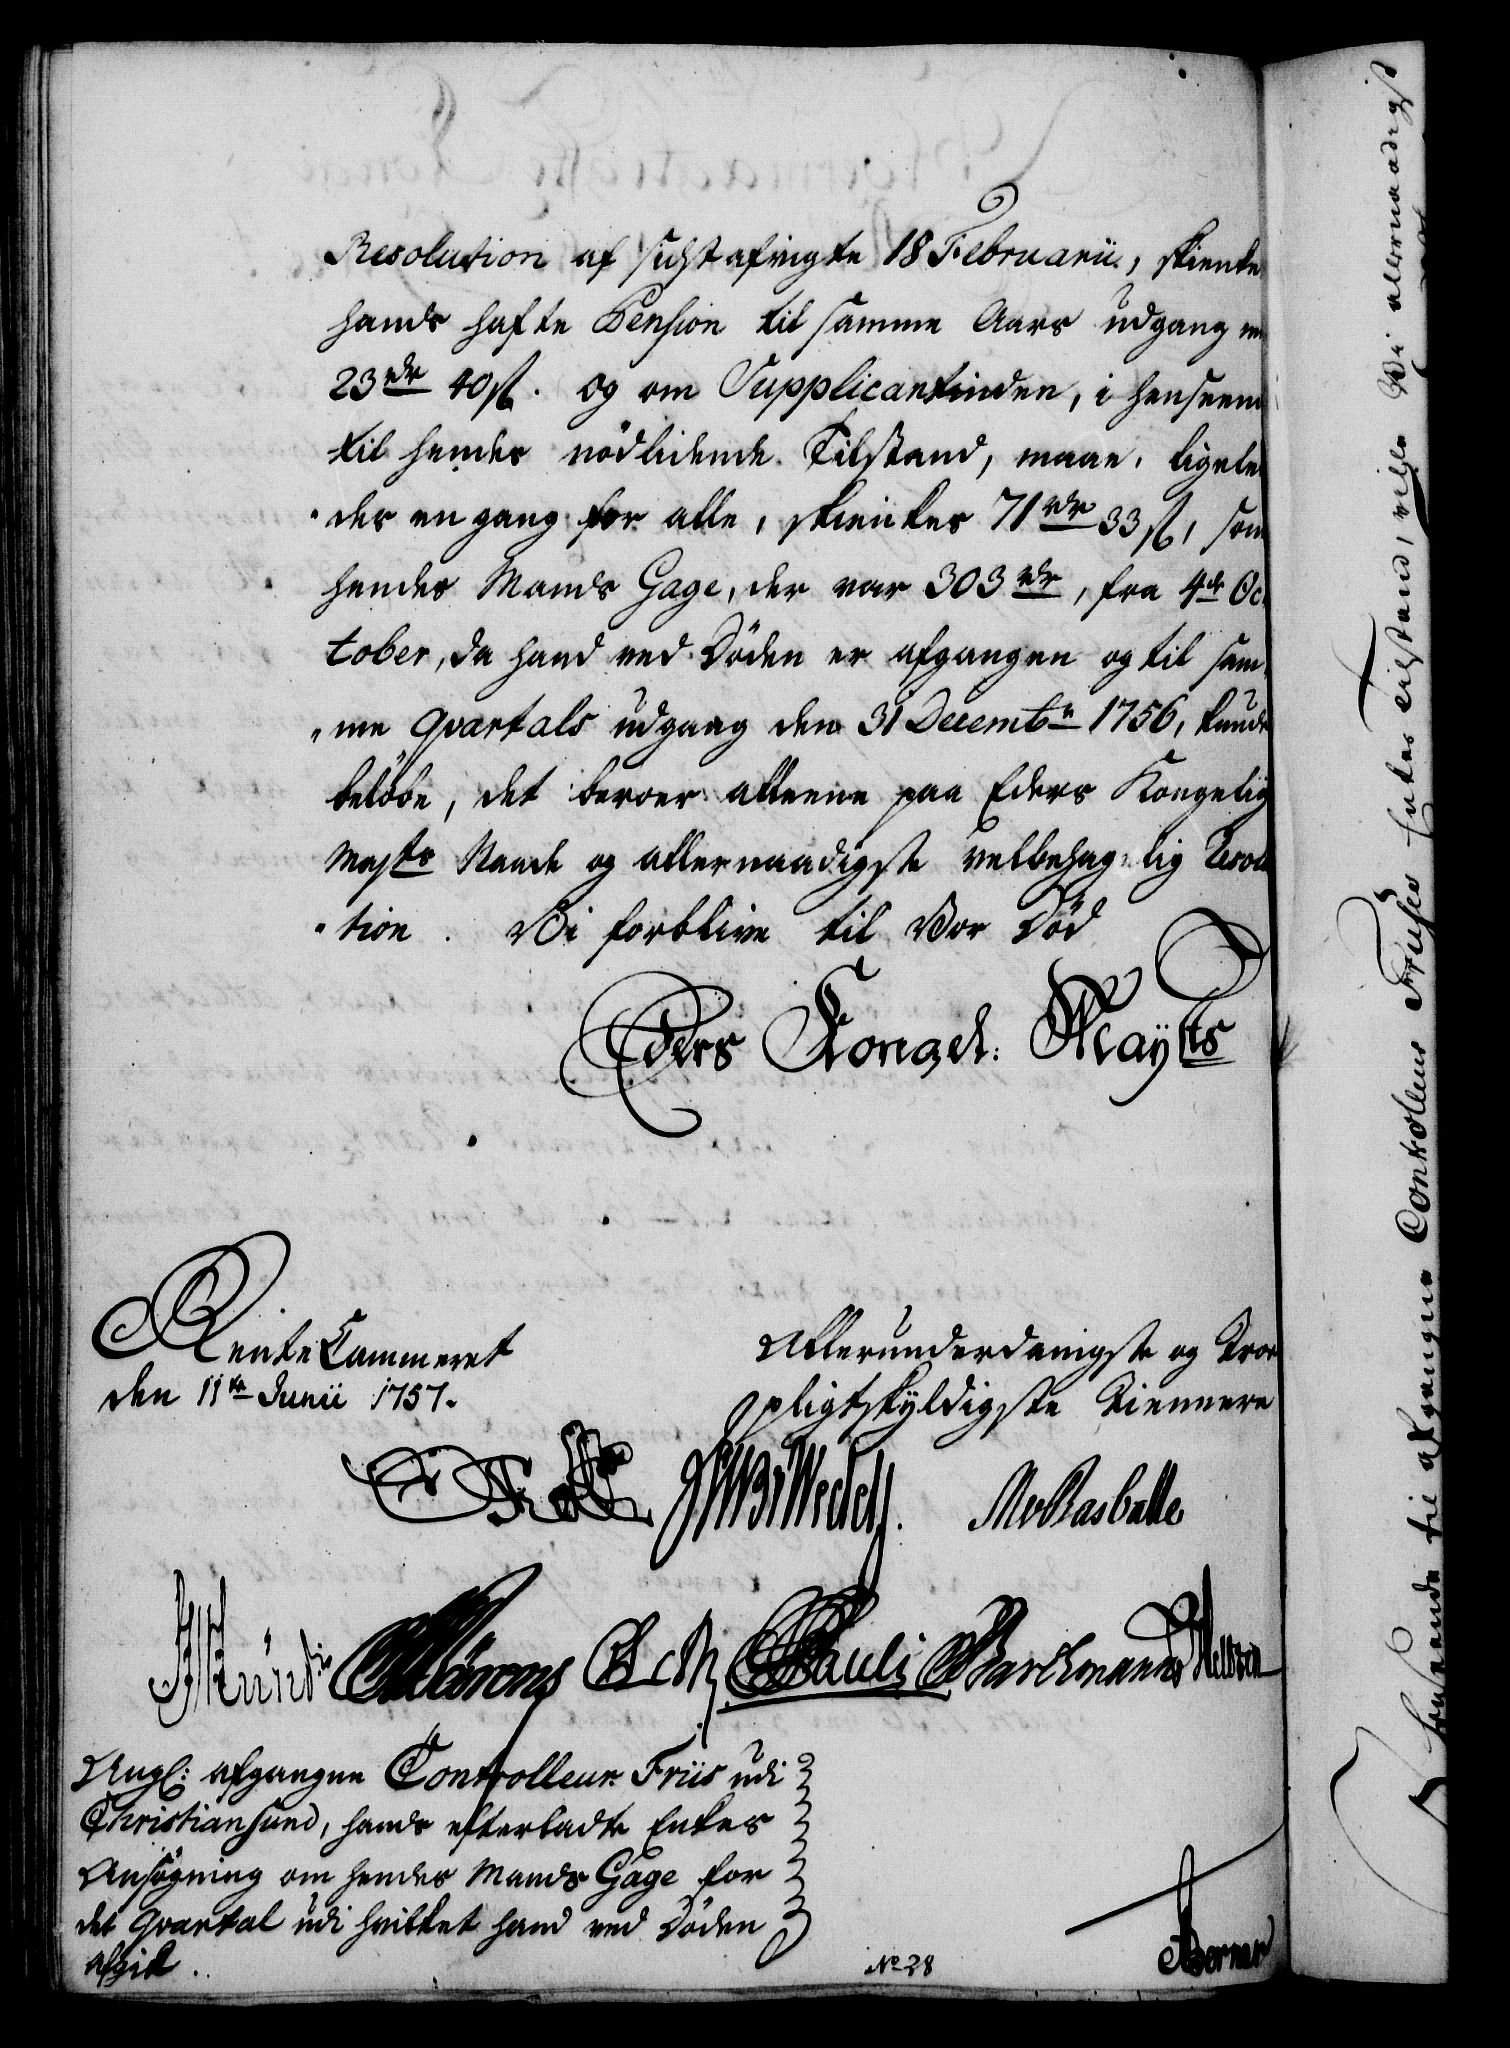 Resolution af sidstafvigte 18 Februarii, skienke
hands hafte Pension til samme Aars udgang m
23 rdr 40 sk. og om Supplicantinden, i henseen
til hendes nödlidende Tilstand, maae, ligele
des en gang for alle, skienkes 71 rdr 33 sk, som
hendes Mands Gage, der var 303 rdr, fra 4de Oc
tober, da hand ved Döden er afgangen og til sam
me Qvartals udgang den 31 Decembr 1756, kunde
belöbe, det beroer alleene paa Eders Kongelig
Majts Naade og allernaadigste velbehagelig Resolu
tion. Vi forblive til Vor Död
Eders Kongel: Mayts
Rente Cammeret
den 11te Junii 1757.
Allerunderdanigste og Troe
pligtskyldigste Tiennere
Wedell. MvRasballe
Pauli Barchmann
Angl: afgangne Controlleur Friis udi
Christiansund, hands efterladte Enkes
Ansögning om hendes Mands Gage for
det Qvartal udi hvilket hand ved Döden
afgik.
No 28
Berner
Vi allernaadigst
Anseende til afgangne Controlleur Friises Enkes Tilstand, ville